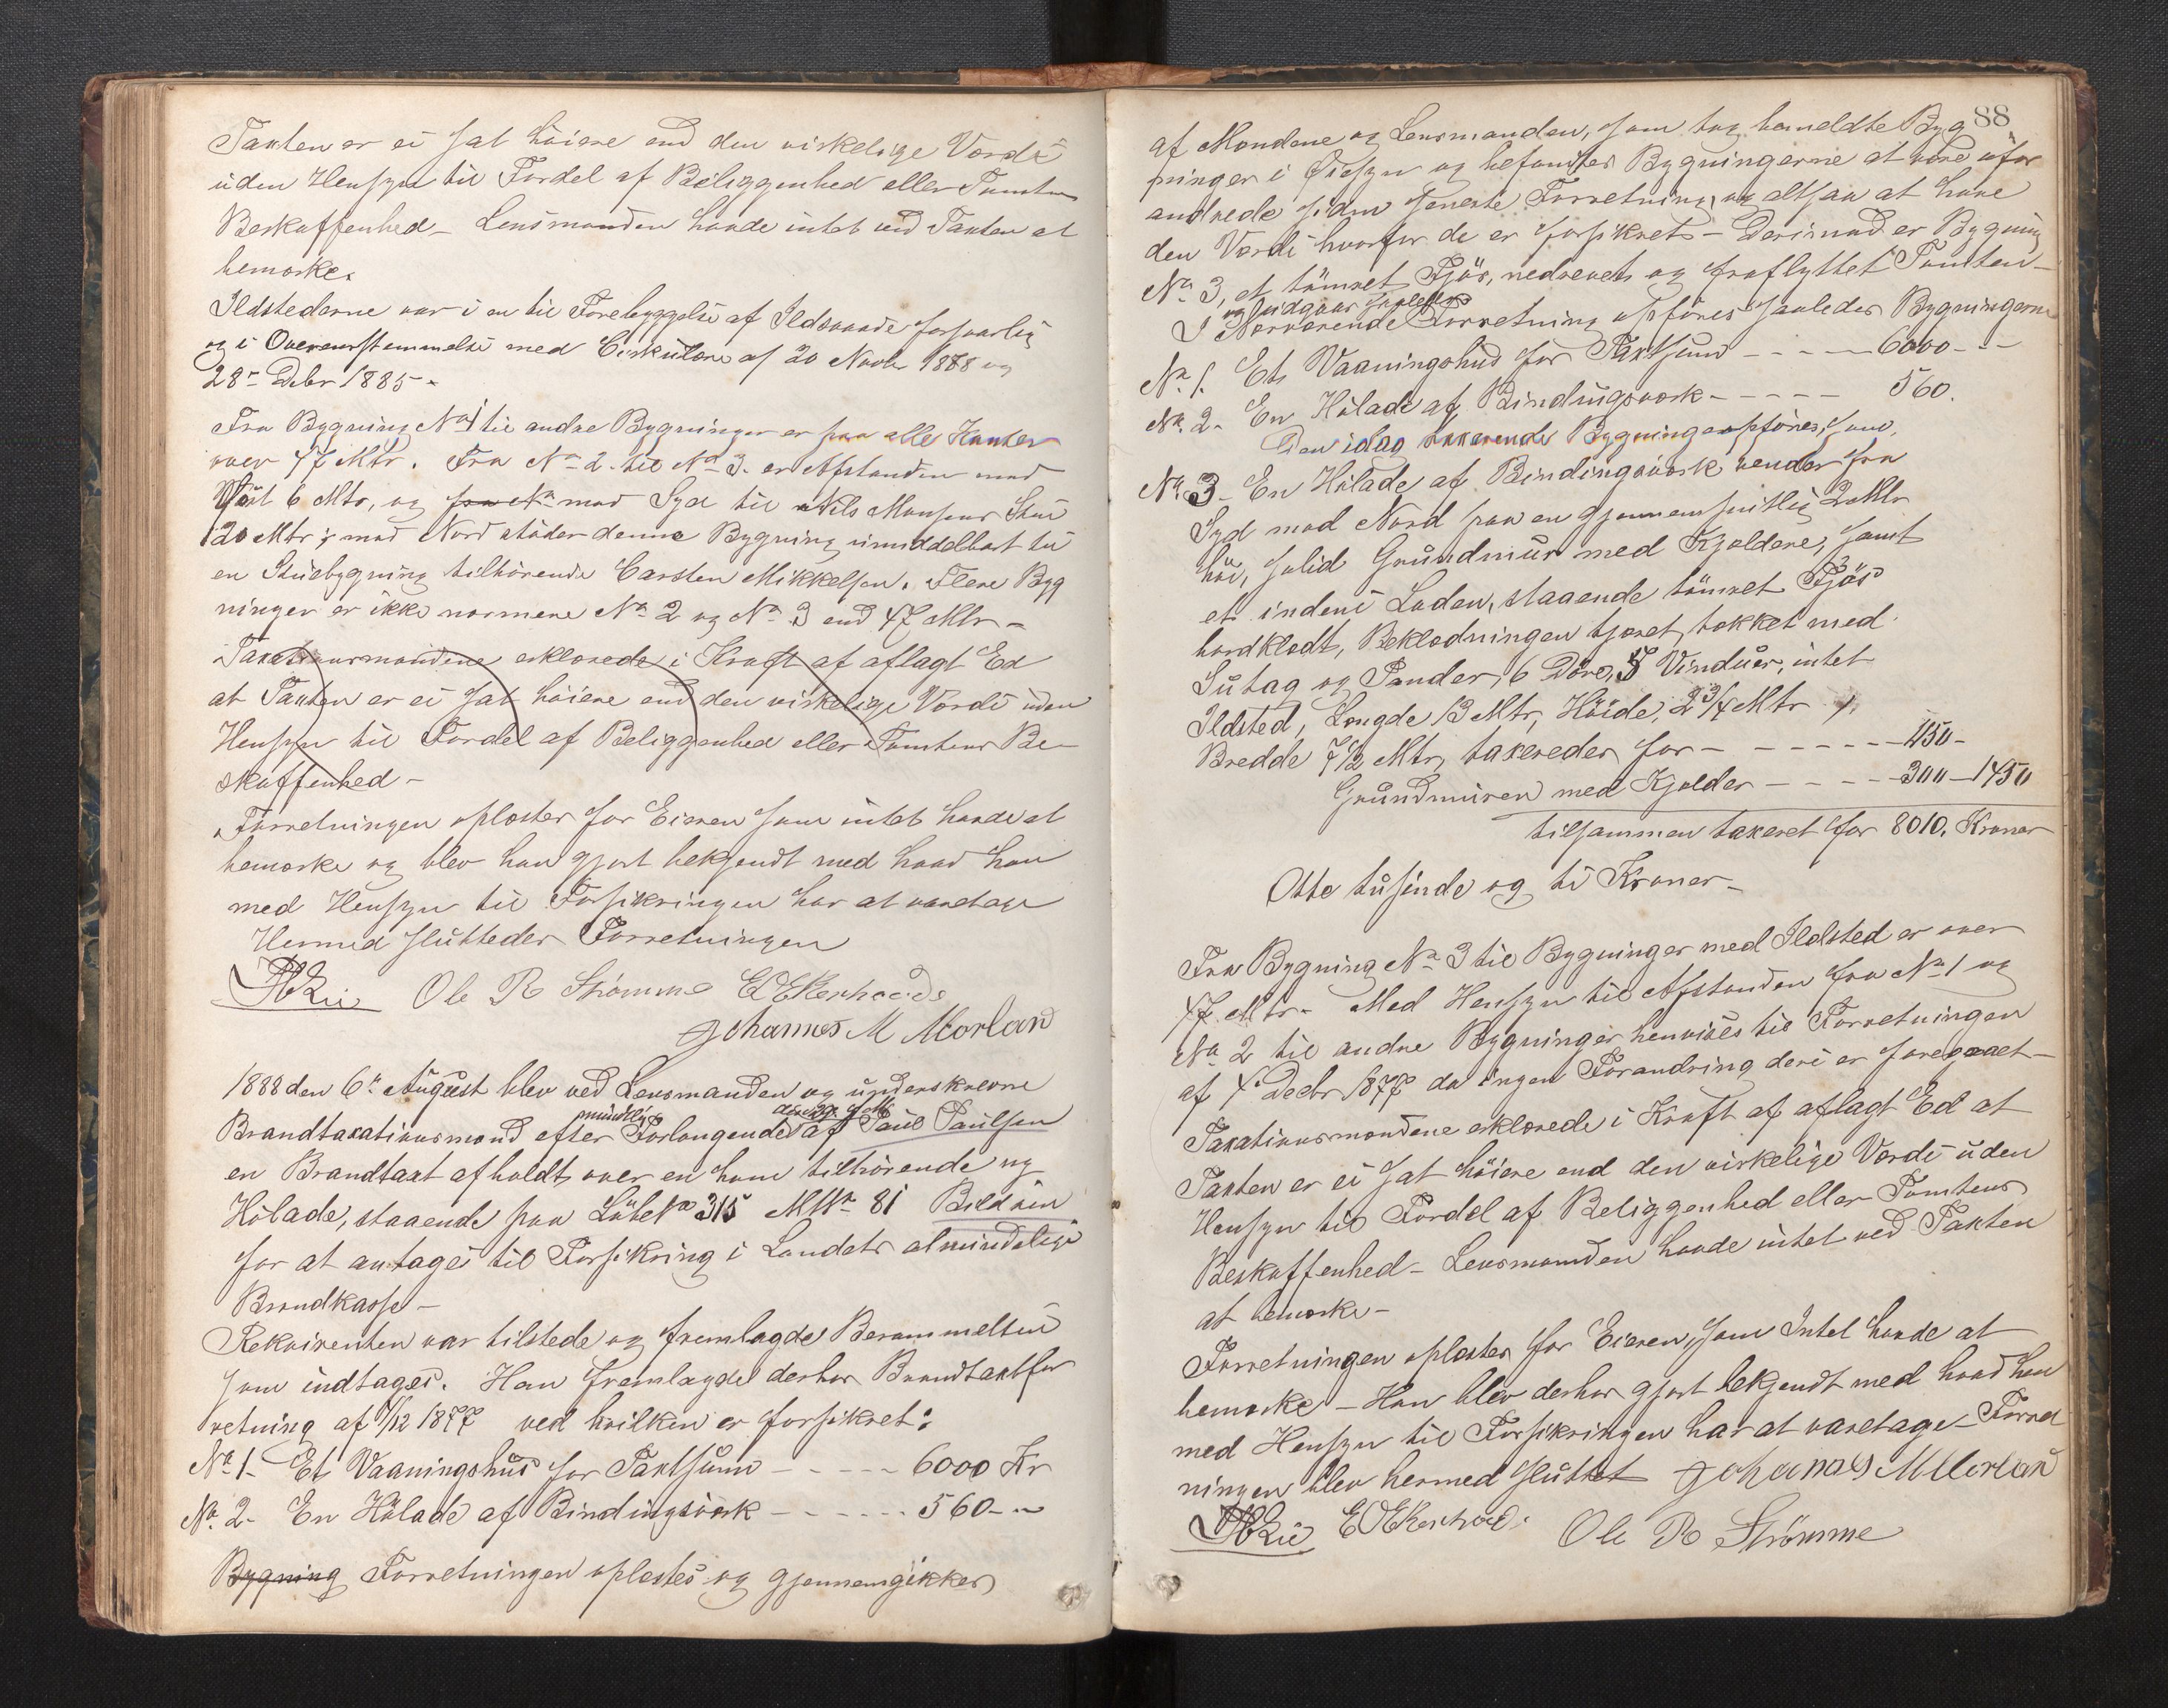 Taxten er ei sat höiere end den virkelige Værdi
uden Hensyn til Fordel af Beliggenhed eller Tomtens
Beskaffenhed – Lensmanden havde intet ved Taxten at
bemærke.
Ildstederne var i en til Forebyggelse af Ildsvaade forsvarlig
og i Overensstemmelse med Cirkulære af 20 Novbr 1888 og
28de Debr 1885 –
Fra Bygning No 1 til andre Bygninger er paa alle Kanter
over 47 Mtr. Fra No 2 til No 3 er Afstanden mod
Væst 6 Mtr, og fra No mod Syd til Nils Monsens Stue
20 Mtr; mod Nord stöder denne Bygning umiddelbart til
en Stuebygning tilhörende Carsten Mikkelsen. Flere Byg
ninger er ikke nærmere No 2 og No 3 end 47 Mtr –
Taxationsmændene erklærede i Kraft af aflagt Ed
at Taxten er ei sat höiere end den virkelige Værdi uden
Hensyn til Fordel af Beliggenhed eller Tomtens Be-
skaffenhed –
Forretningen oplæstes for Eieren som intet havde at
bemærke og blev han gjort bekjendt med hvad han
med Hensyn til Forsikringen har at varetage
Hermed sluttedes Forretningen
Ole R Strömme
Johannes M Morland
1888 den 6te August blev ved Lensmanden og underskrevne
mundtlig
Brandtaxationsmænd efter Forlangende af Paul Paulsen
en Brandtaxt afholdt over en ham tilhörende ny
Hölade, staaende paa Löbe No 315 MNo 81 Bildöen
for at antages til Forsikring i Landets almindelige
Brandkasse –
Rekvirenten var tilstede og fremlagde Berammelsen
som indtages. Han fremlagde derhos Brandtaxtfor
retning af 4/12 1877 ved hvilken er forsikret:
No 1 – Et Vaaningshus for Taxtsum – – – – 6000 Kr
No 2 – En Hölade af Bindingsværk – – – – – 560 – "
Bygning Forretningen oplæstes og gjennemgikkes
88
af Mændene og Lensmanden, som tog bemeldte Byg
ninger i Öiesyn og befandtes Bygningerne at være ufor
andrede siden seneste Forretning, og altsaa at have
den Værdi hvorfor de er forsikret – Derimod er Bygning
No 3, et tömret Fjös, nedrevet og fraflyttet Tomten –
og udgaar saaledes
I Nærværende Forretning opföres saaledes Bygningerne
No 1. Et Vaaningshus for Taxtsum – – – – 6000 – –
No 2 – En Hölade af Bindingsværk – – – – – 560.
Den idag taxerende Bygning opföres som
No 3 – En Hölade af Bindingsværk vender fra
Syd mod Nord paa en gjennemsnitlig 2 Mtr
höi, solid Grundmur med Kjældere, samt
et indeni Laden, staaende tömret Fjös
bordklædt, Beklædningen tjæret, tækket med
Sutag og Pander, 6 Döre, 5 Vinduer, intet
Ildsted, Længde 13 Mtr, Höide, 2 3/4 Mtr
Bredde 7 1/2 Mtr, taxeredes for – – – – – – – 1150 –
Grundmuren med Kjelder – – – – 300 – 1450
tilsammen taxeret for 8010, Kroner
Otte tusinde og ti Kroner –
Fra Bygning No 3 til Bygninger med Ildsted er over
47 Mtr – Med Hensyn til Afstanden fra No 1 og
No 2 til andre Bygninger henvises til Forretningen
af 4 Decbr 1877 da ingen Forandring deri er foregaaet –
Taxationsmændene erklærede i Kraft af aflagt Ed at
Taxten er ei sat höiere end den virkelige Værdi uden
Hensyn til Fordel af Beliggenhed eller Tomtens
Beskaffenhed – Lensmanden havde intet ved Taxten
at bemærke –
Forretningen oplæstes for Eieren, som Intet havde at
bemærke – Han blev derhos gjort bekjendt med hvad han
med Hensyn til Forsikringen har at varetage – Forret
ningen blev hermed sluttet Johannes M Morland
Ole R Strömme